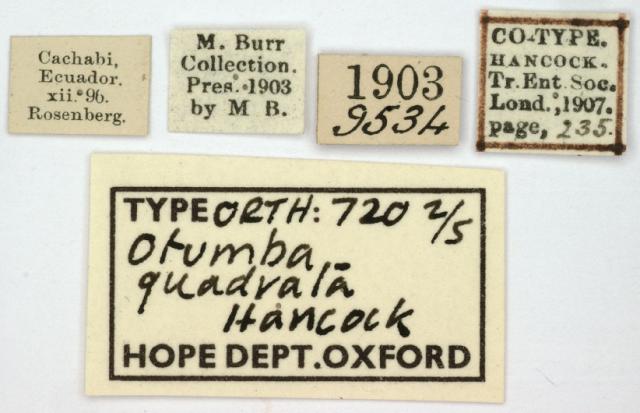 Cachabi,
Ecuador.
xii. 96.
Rosenberg.
M. Burr
Collection.
Pres. 1903
by M B.
1903
9534
CO-TYPE.
HANCOCK.
Tr. Ent. Soc.
Lond., 1907.
page, 235.
TYPE ORTH: 720 2/5
Otumba
quadrata
Hancock
HOPE DEPT. OXFORD